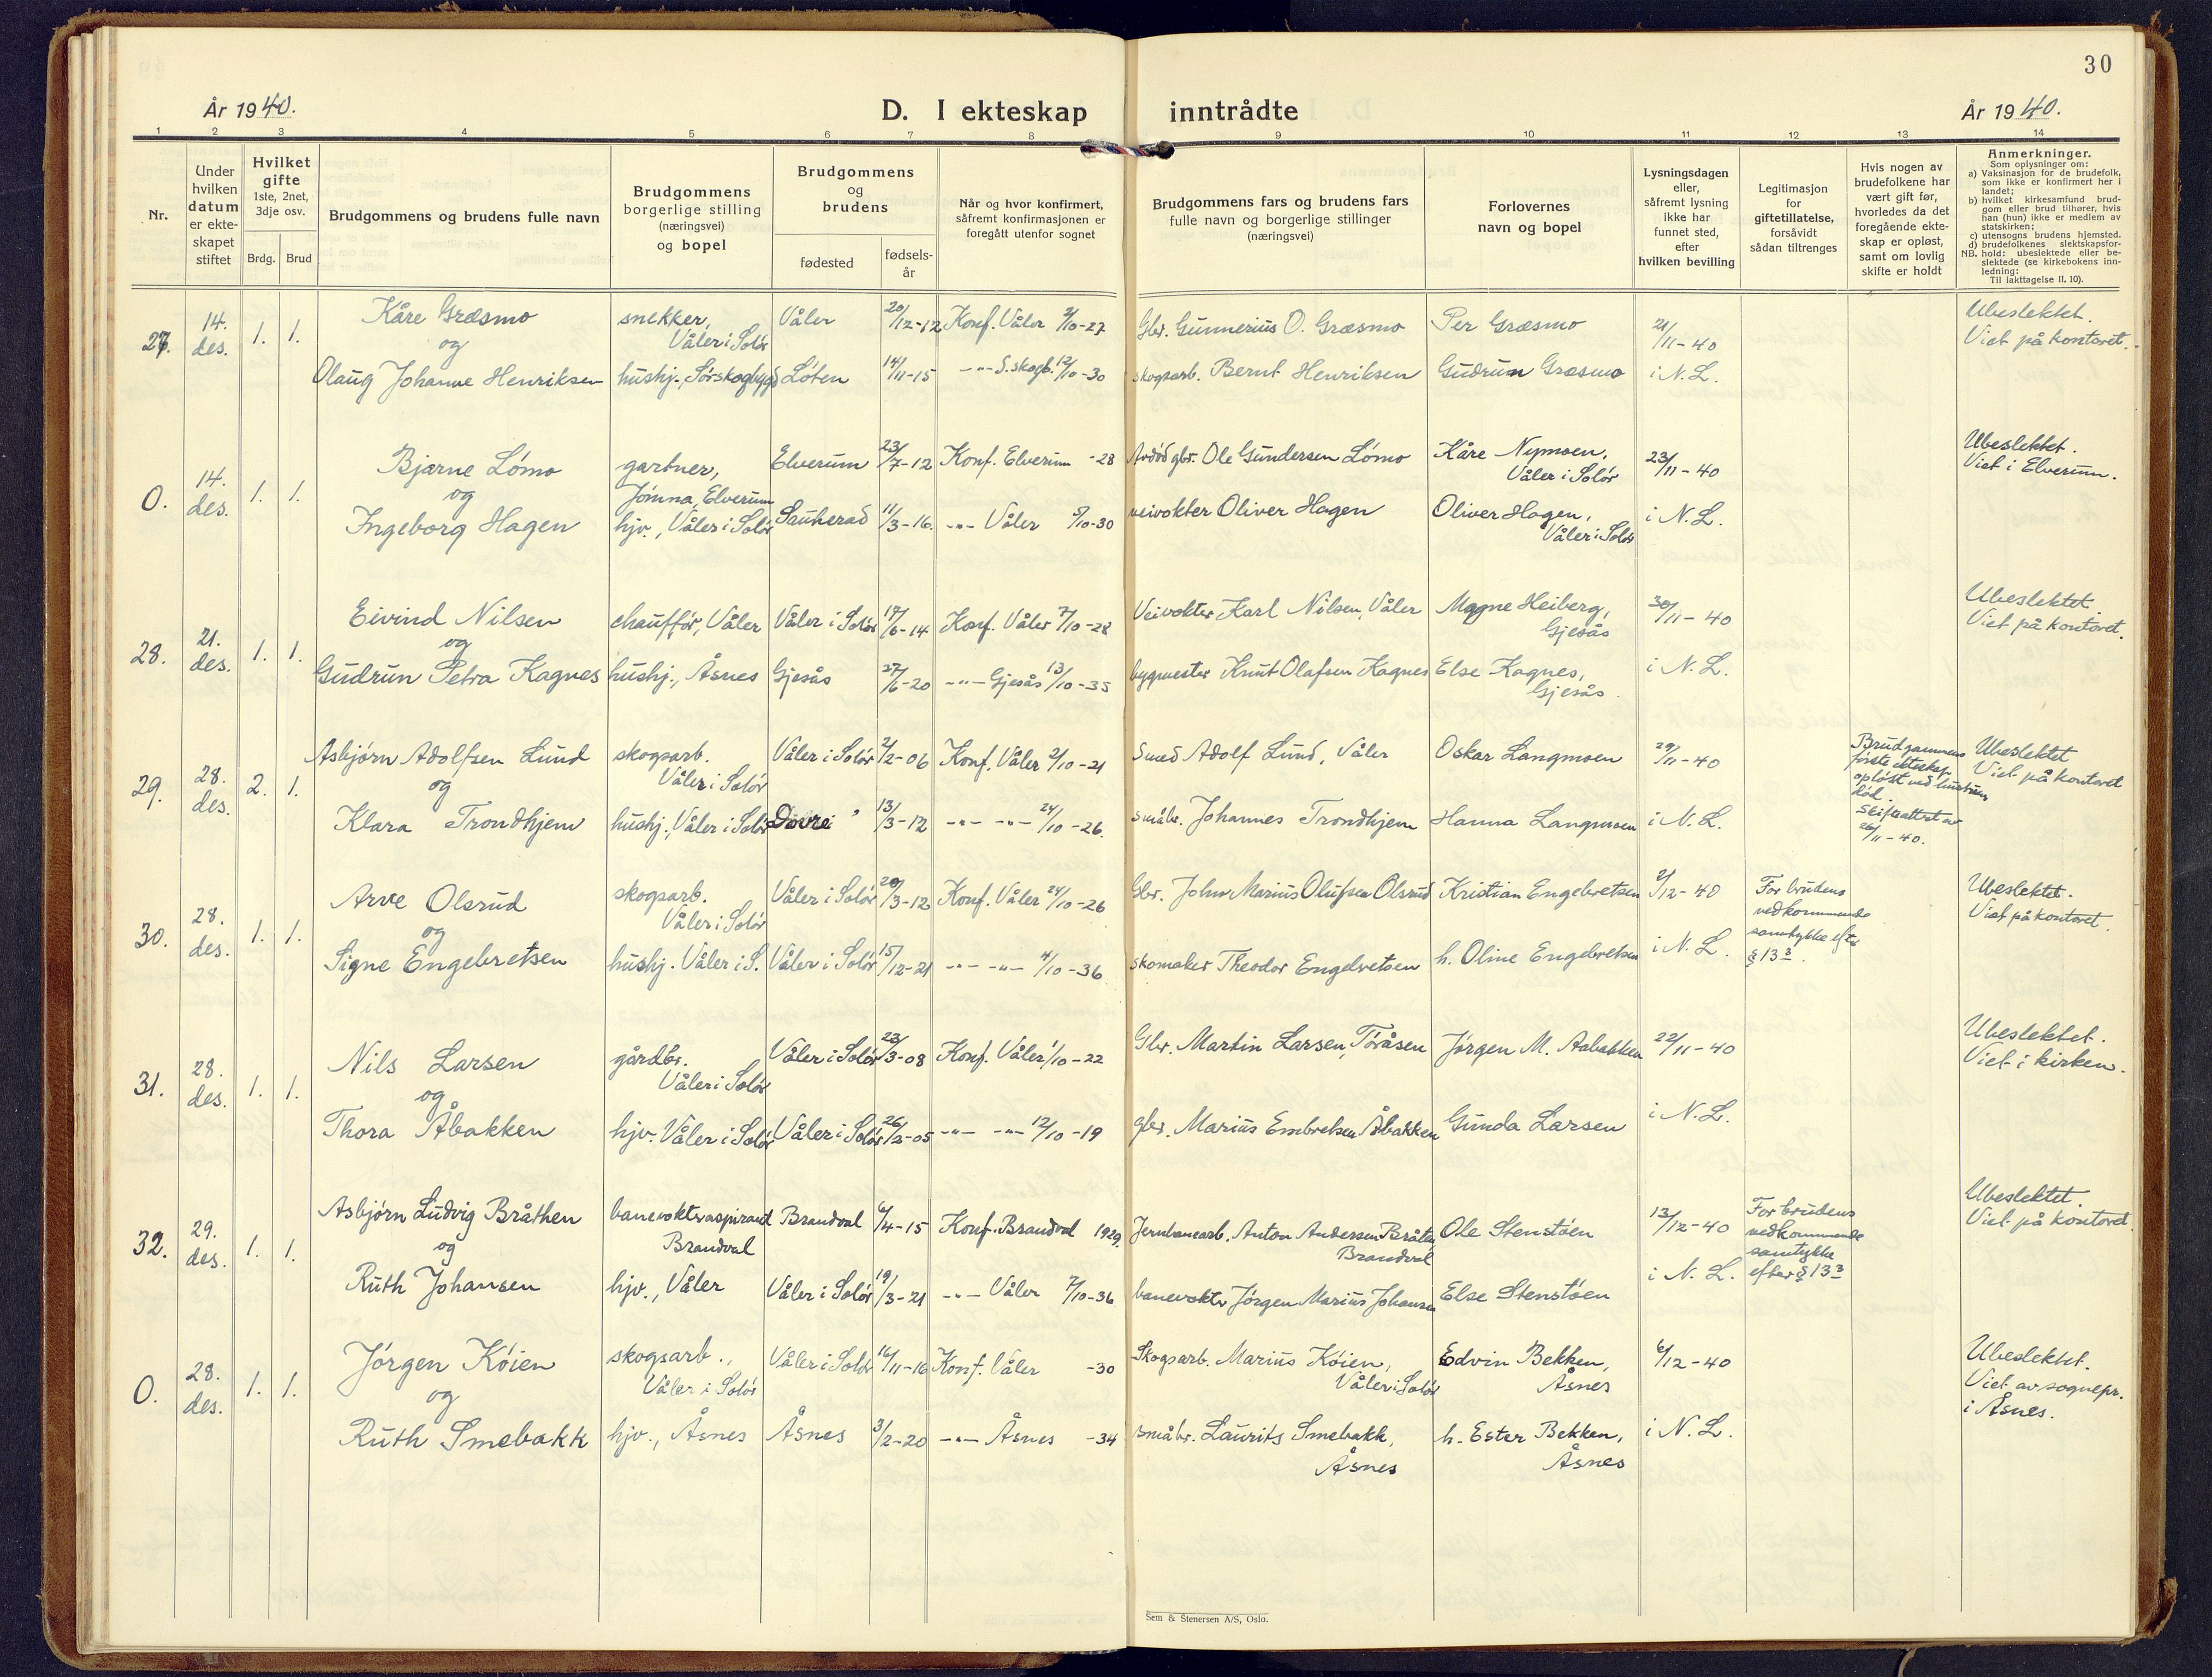 30
År 1940.
D. I ekteskap inntrådte
År 1940.
1 2 3 4 5 6 7 8 9 10 11 12 13 14
Nr.
Under
hvilken
datum
er ekte-
skapet
stiftet
Hvilket
gifte
1ste, 2net,
3dje osv.
Brdg. Brud
Brudgommens og brudens fulle navn
Brudgommens
borgerlige stilling
(næringsvei)
og bopel
Brudgommens
og
brudens
fødested
fødsels-
år
Når og hvor konfirmert,
såfremt konfirmasjonen er
foregått utenfor sognet
Brudgommens fars og brudens fars
fulle navn og borgerlige stillinger
(næringsvei)
Forlovernes
navn og bopel
Lysningsdagen
eller,
såfremt lysning
ikke har
funnet sted,
efter
hvilken bevilling
Legitimasjon
for
giftetillatelse,
forsåvidt
sådan tiltrenges
Hvis nogen av
brudefolkene har
vært gift før,
hvorledes da det
foregående ekte-
skap er opløst,
samt om lovlig
skifte er holdt
Anmerkninger.
Som oplysninger om:
a) Vaksinasjon for de brudefolk,
som ikke er konfirmert her i
landet;
b) hvilket kirkesamfund brud-
gom eller brud tilhører, hvis
han (hun) ikke er medlem av
statskirken;
c) utensogns brudens hjemsted.
d) brudefolkenes slektskapsfor-
NB. hold: ubeslektede eller be-
slektede (se kirkebokens inn-
ledning:
Til iakttagelse II. 10).
27. 14. des. 1. 1.
Kåre Græsmo
og
Olaug Johanne Henriksen
snekker,
Våler i Solør
hushj., Sørskogbygd
Våler 20/12-12 Konf. Våler 2/10-27
Løten 14/11-15 -"- S.skogb. 12/10-30
Gbr. Gunnerius O. Græsmo
skogsarb. Bernt Henriksen
Per Græsmo
Gudrun Græsmo
21/11-40
i N.L.
Ubeslektet.
Viet på kontoret.
0. 14. des. 1. 1.
Bjarne Lømo
og
Ingeborg Hagen
gartner,
Jømna, Elverum
hjv., Våler i Solør
Elverum 23/7-12 Konf. Elverum -28
Sauherad 11/3-16. -"- Våler 5/10-30
Avdød gbr. Ole Gundersen Lømo
veivokter Oliver Hagen
Kåre Nymoen,
Våler i Solør
Oliver Hagen,
Våler i Solør
23/11-40
i N.L.
Ubeslektet.
Viet i Elverum.
28. 21. des. 1. 1.
Eivind Nilsen
og
Gudrun Petra Kagnes
chauffør, Våler
hushj., Åsnes
Våler i Solør 17/6-14 Konf. Våler 7/10-28
Gjesås 27/6-20 -"- Gjesås 13/10-35
Veivokter Karl Nilsen, Våler
bygmester Knut Olafsen Kagnes
Magne Heiberg,
Gjesås
Else Kagnes,
Gjesås.
30/11-40
i N.L.
Ubeslektet.
Viet på kontoret.
29. 28. des. 2. 1.
Asbjørn Adolfsen Lund
og
Klara Trondhjem
skogsarb.
Våler i Solør
hushj., Våler i Solør
Våler i Solør 2/2-06 Konf. Våler 2/10-21
Dovre 13/3-12 -"- -"- 24/10-26.
Smed Adolf Lund, Våler
småbr. Johannes Trondhjem
Oskar Langmoen
Hanna Langmoen
29/11-40
i N.L.
Brudgommens
første ekteskap
opløst ved hustruens
død.
Skifteattest av
26/11-40.
Ubeslektet
Viet på kontoret
30. 28. des. 1. 1.
Arve Olsrud
og
Signe Engebretsen
skogsarb.
Våler i Solør
hushj. Våler i S.
Våler i Solør 20/3-12 Konf. Våler 24/10-26
Våler i Solør 15/12-21 -"- -"- 4/10-36
Gbr. John Marius Olufsen Olsrud
skomaker Theodor Engebretsen
Kristian Engebretsen
h. Oline Engebretsen
2/12-40
i N.L.
For brudens
vedkommende
samtykke efter
§ 13 3.
Ubeslektet.
Viet på kontoret.
31. 28. des. 1. 1.
Nils Larsen
og
Thora Åbakken
gårdbr.
Våler i Solør
hjv. Våler i Solør
Våler i Solør 23/3-08 Konf. Våler 1/10-22
Våler i Solør 26/2-05 -"- -"- 12/10-19
Gbr. Martin Larsen, Toråsen
gbr. Marius Embretsen Åbakken
Jørgen M. Aabakken
Gunda Larsen
22/11-40
i N.L.
Ubeslektet.
Viet i kirken.
32. 29. des. 1. 1.
Asbjørn Ludvig Bråthen
og
Ruth Johansen
banevokteraspirant
Brandval
hjv., Våler
Brandval 6/4-15 Konf. Brandval 1929.
Våler i Solør 19/3-21 -"- Våler 7/10-36
Jernbanearb. Anton Andersen Bråten
Brandval
banevokter Jørgen Marius Johansen
Ole Stenstøen
Else Stenstøen
13/12-40
i N.L.
For brudens
vedkommende
samtykke
efter § 13 3
Ubeslektet.
Viet på kontoret.
0. 28. des. 1. 1.
Jørgen Køien
og
Ruth Smebakk
skogsarb.,
Våler i Solør
hjv., Åsnes
Våler i Solør 16/11-16 Konf. Våler -30
Åsnes 3/2-20 -"- Åsnes -34
Skogsarb. Marius Køien,
Våler i Solør
småbr. Laurits Smebakk,
Åsnes
Edvin Bekken,
Åsnes
h. Ester Bekken,
Åsnes
6/12-40
i N.L.
Ubeslektet.
Viet av sognepr.
i Åsnes.
Sem & Stenersen A/S, Oslo.